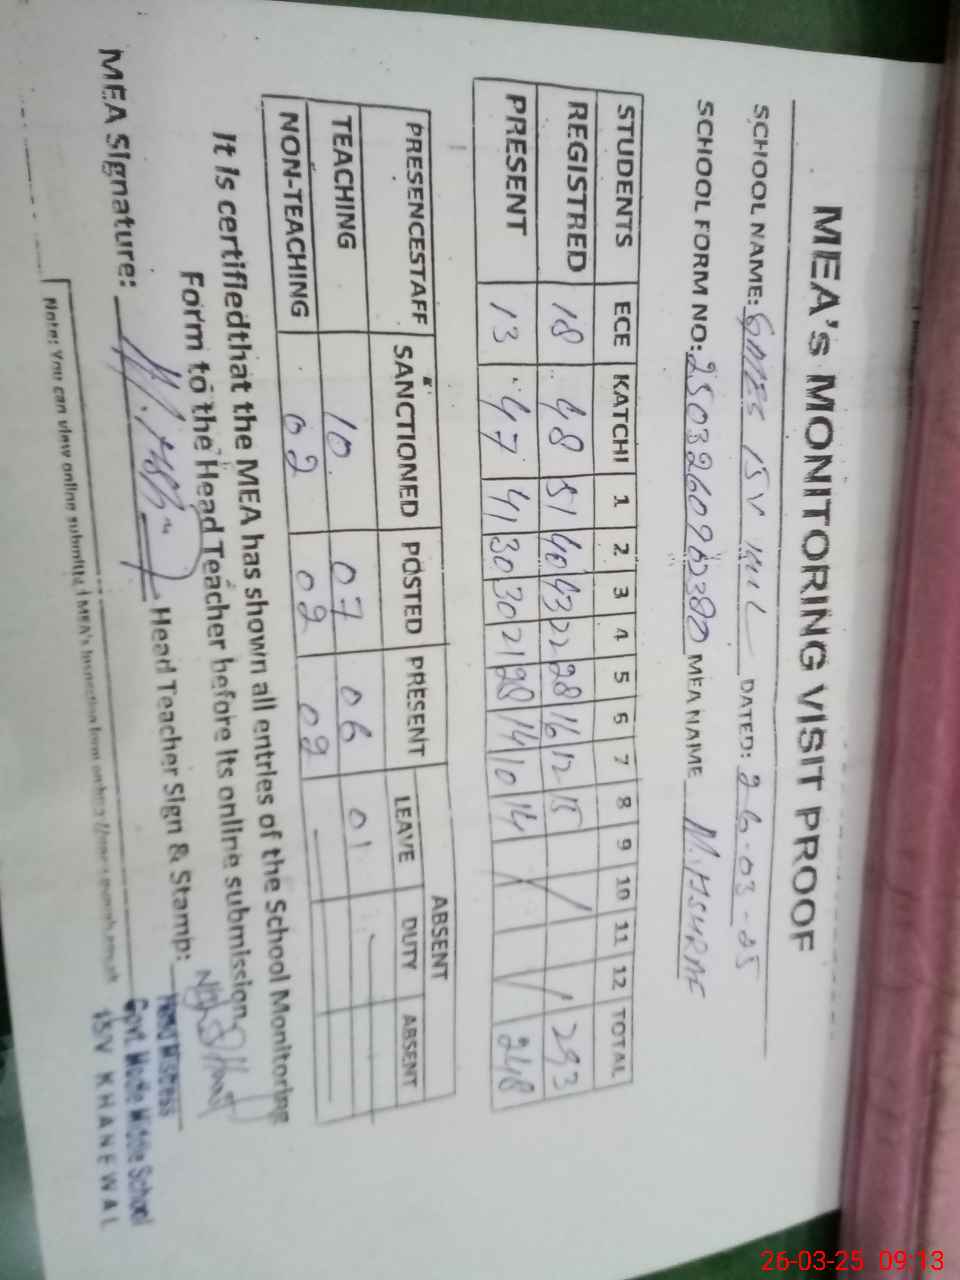 MEA'S MONITORING VISIT PROOF
SCHOOL NAME: GMES 15V KWL DATED: 26-03-25
SCHOOL FORM NO: MEA NAME
STUDENTS ECE KATCHI 1 2 3 4 5 6 7 8 9 10 11 12 TOTAL
REGISTRED 18 48 51 40 43 22 28 16 12 15 293
PRESENT 13 47 41 30 30 21 28 14 10 14 248
ABSENT
PRESENCESTAFF SANCTIONED POSTED PRESENT LEAVE DUTY ABSENT
TEACHING 10 07 06 01
NON-TEACHING 02 02 02
It is certifiedthat the MEA has shown all entries of the School Monitoring
Form to the Head Teacher before its online submission.
MEA Signature: Head Teacher Sign & Stamp:
Head Mistress
Govt. Middle School
15/V KHANEWAL
Note: You can view online submitted MEA's Inspection from
26-03-25 09:13